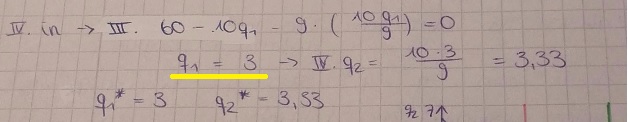 IV. in → III. 60 - 10q₁ - 9 · (10q₁/9) = 0
q₁ = 3 → IV. q₂ = 10·3/9 = 3,33
q₁* = 3 q₂* = 3,33
q₂ 7↑